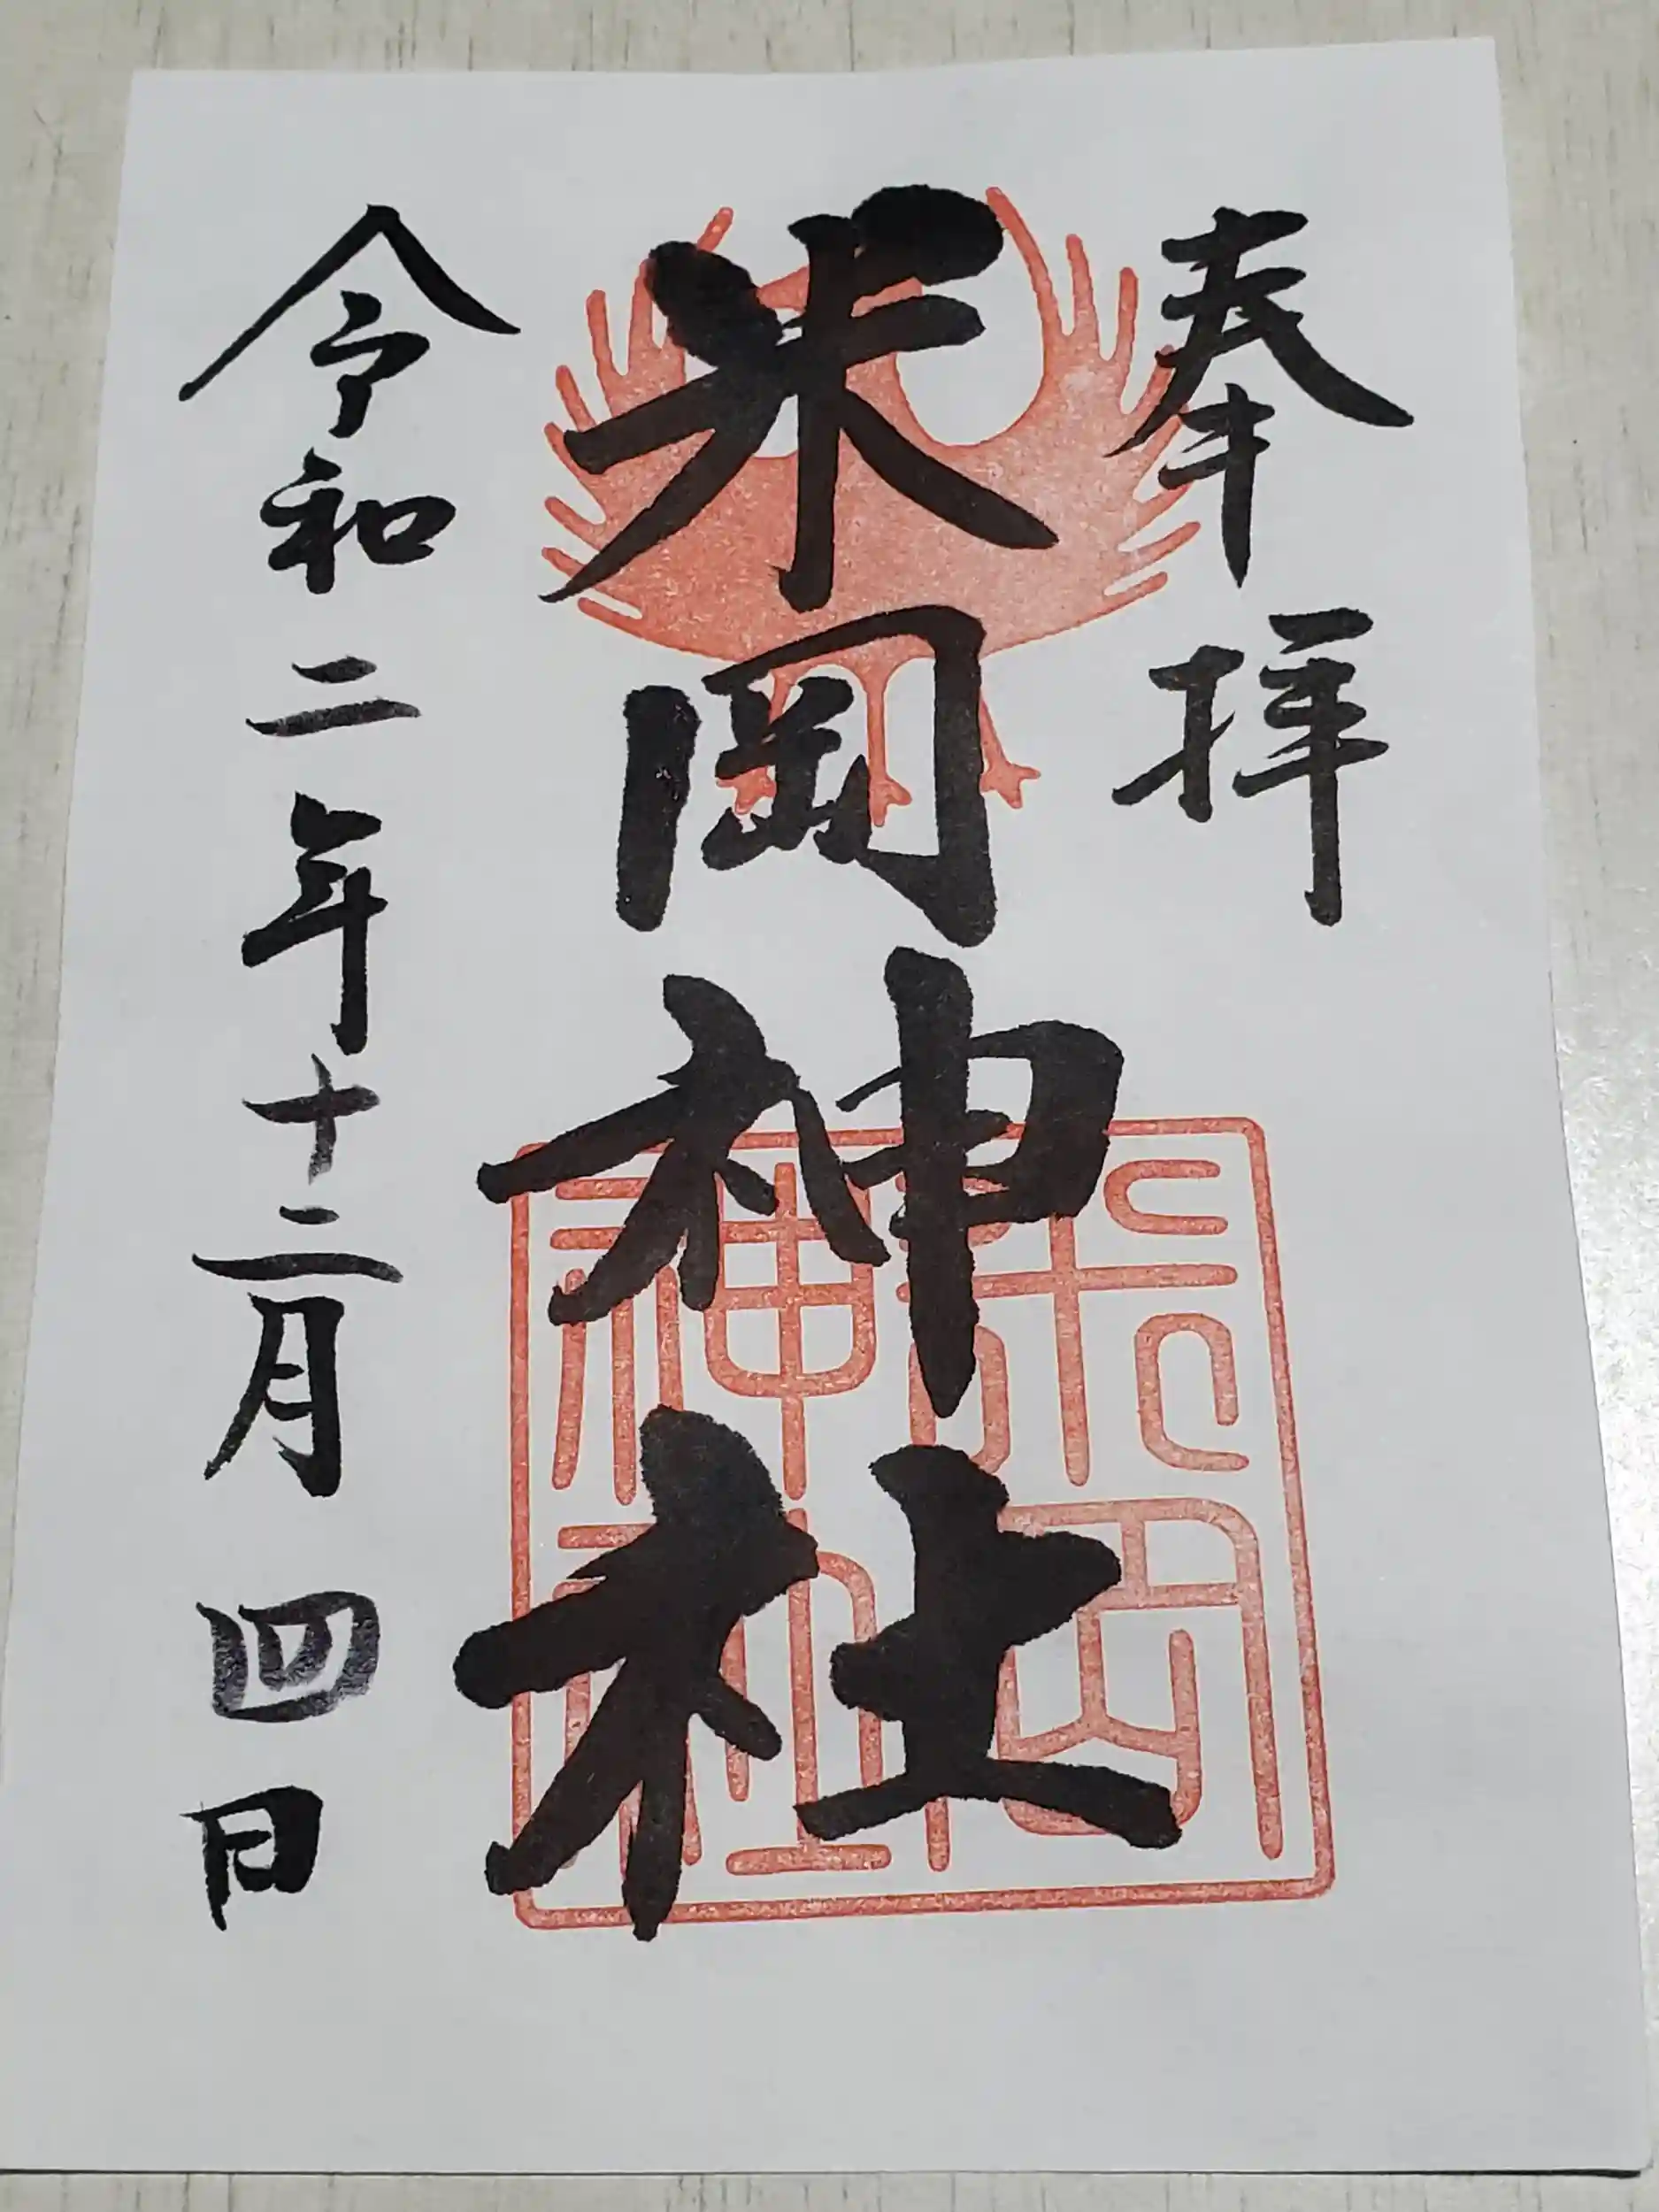 奉拝
米岡神社
米岡
神社
令和二年十二月四日